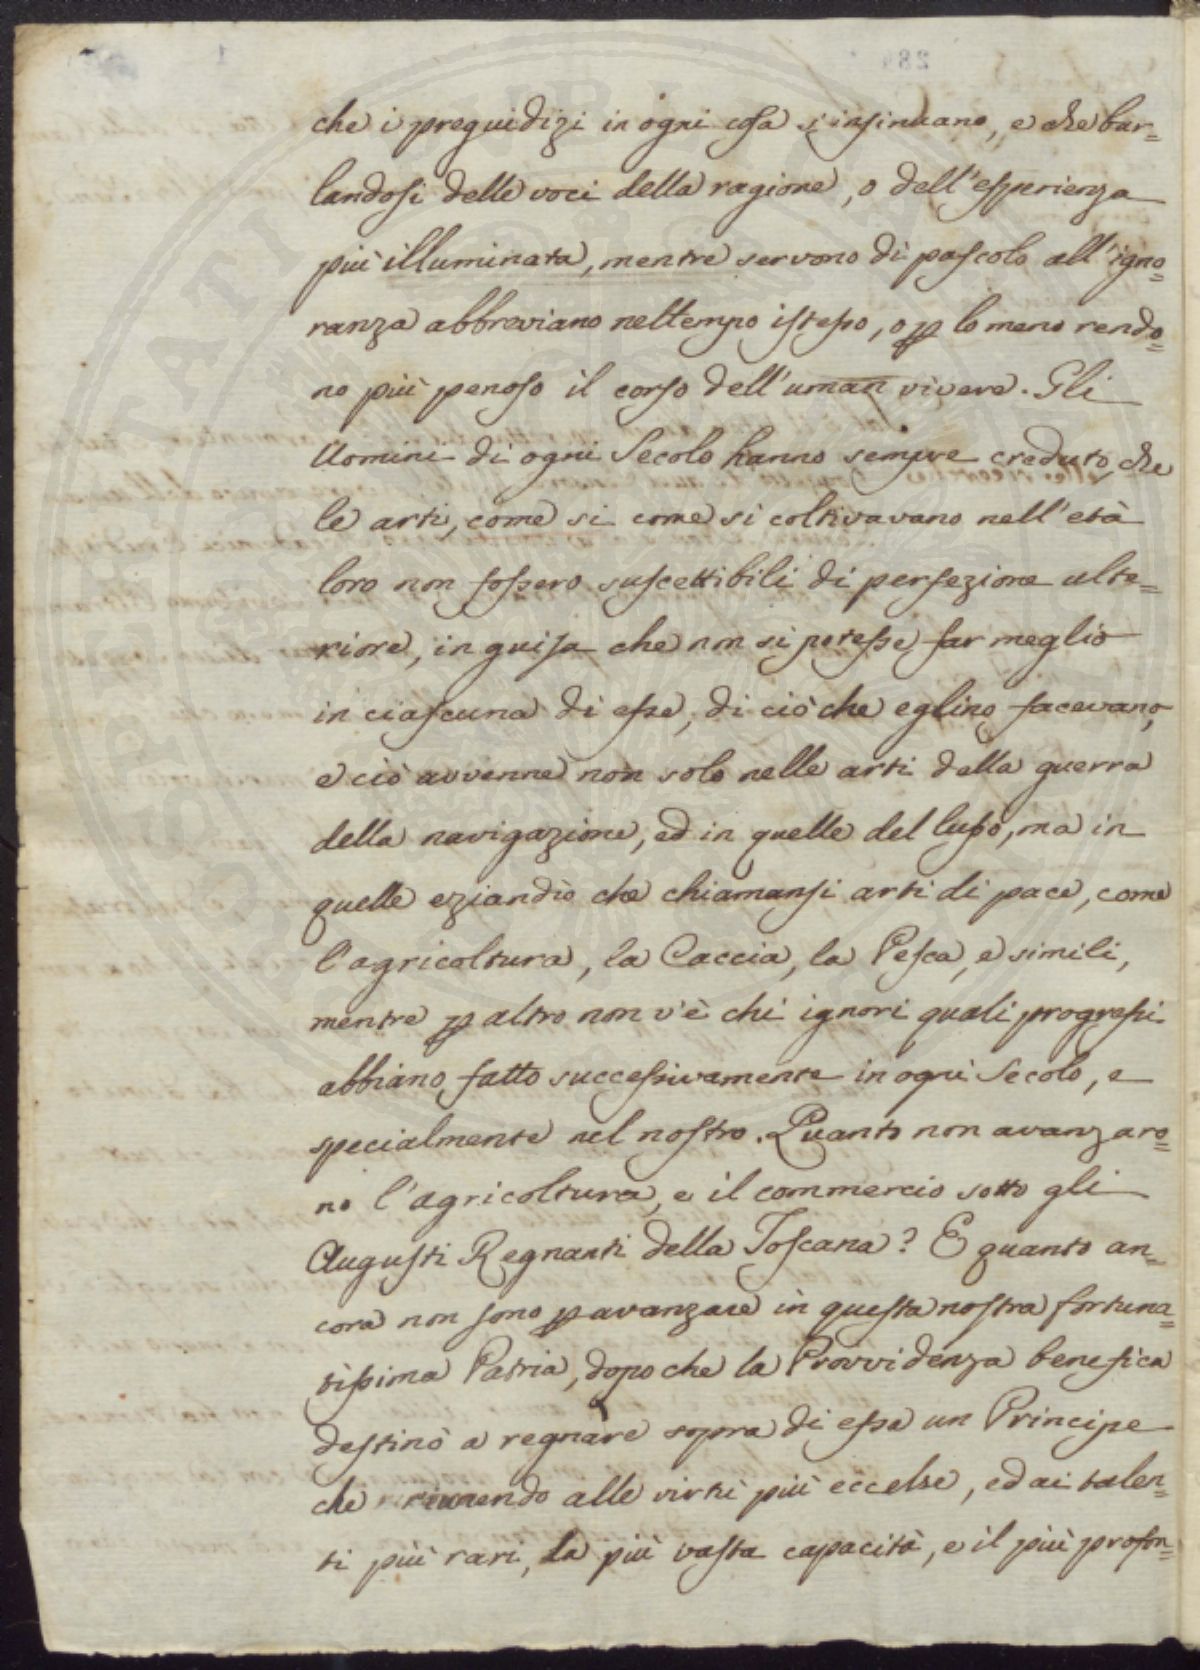 che i preguidizi in ogni cosa s'insinuano, e che bur=
landosi delle voci della ragione, o dell'esperienza
più illuminata, mentre servono di pascolo all'igno=
ranza abbreviano nel tempo istesso, o p lo meno rendo=
no più penoso il corso dell'uman vivere. Gli
Uomini di ogni Secolo hanno sempre creduto, che
le arti, come si come si coltivavano nell'età
loro non fossero suscettibili di perfezione ulte=
riore, in guisa che non si potesse far meglio
in ciascuna di esse, di ciò che eglino facevano,
e ciò avvenne non solo nelle arti della guerra
della navigazione, ed in quelle del lusso, ma in
quelle eziandìo che chiamansi arti di pace, come
l'agricoltura, la Caccia, la Pesca, e simili,
mentre p altro non v'è chi ignori quali progressi
abbiano fatto successivamente in ogni Secolo, e
specialmente nel nostro. Quanto non avanzaro=
no l'agricoltura, e il commercio sotto gli
Augusti Regnanti della Toscana? E quanto an=
cora non sono p avanzare in questa nostra fortuna=
tissima Patria, dopo che la Provvidenza benefica
destinò a regnare sopra di essa un Principe
che riunendo alle virtù più eccelse, ed ai talen=
ti più rari, la più vasta capacità, e il più profon=